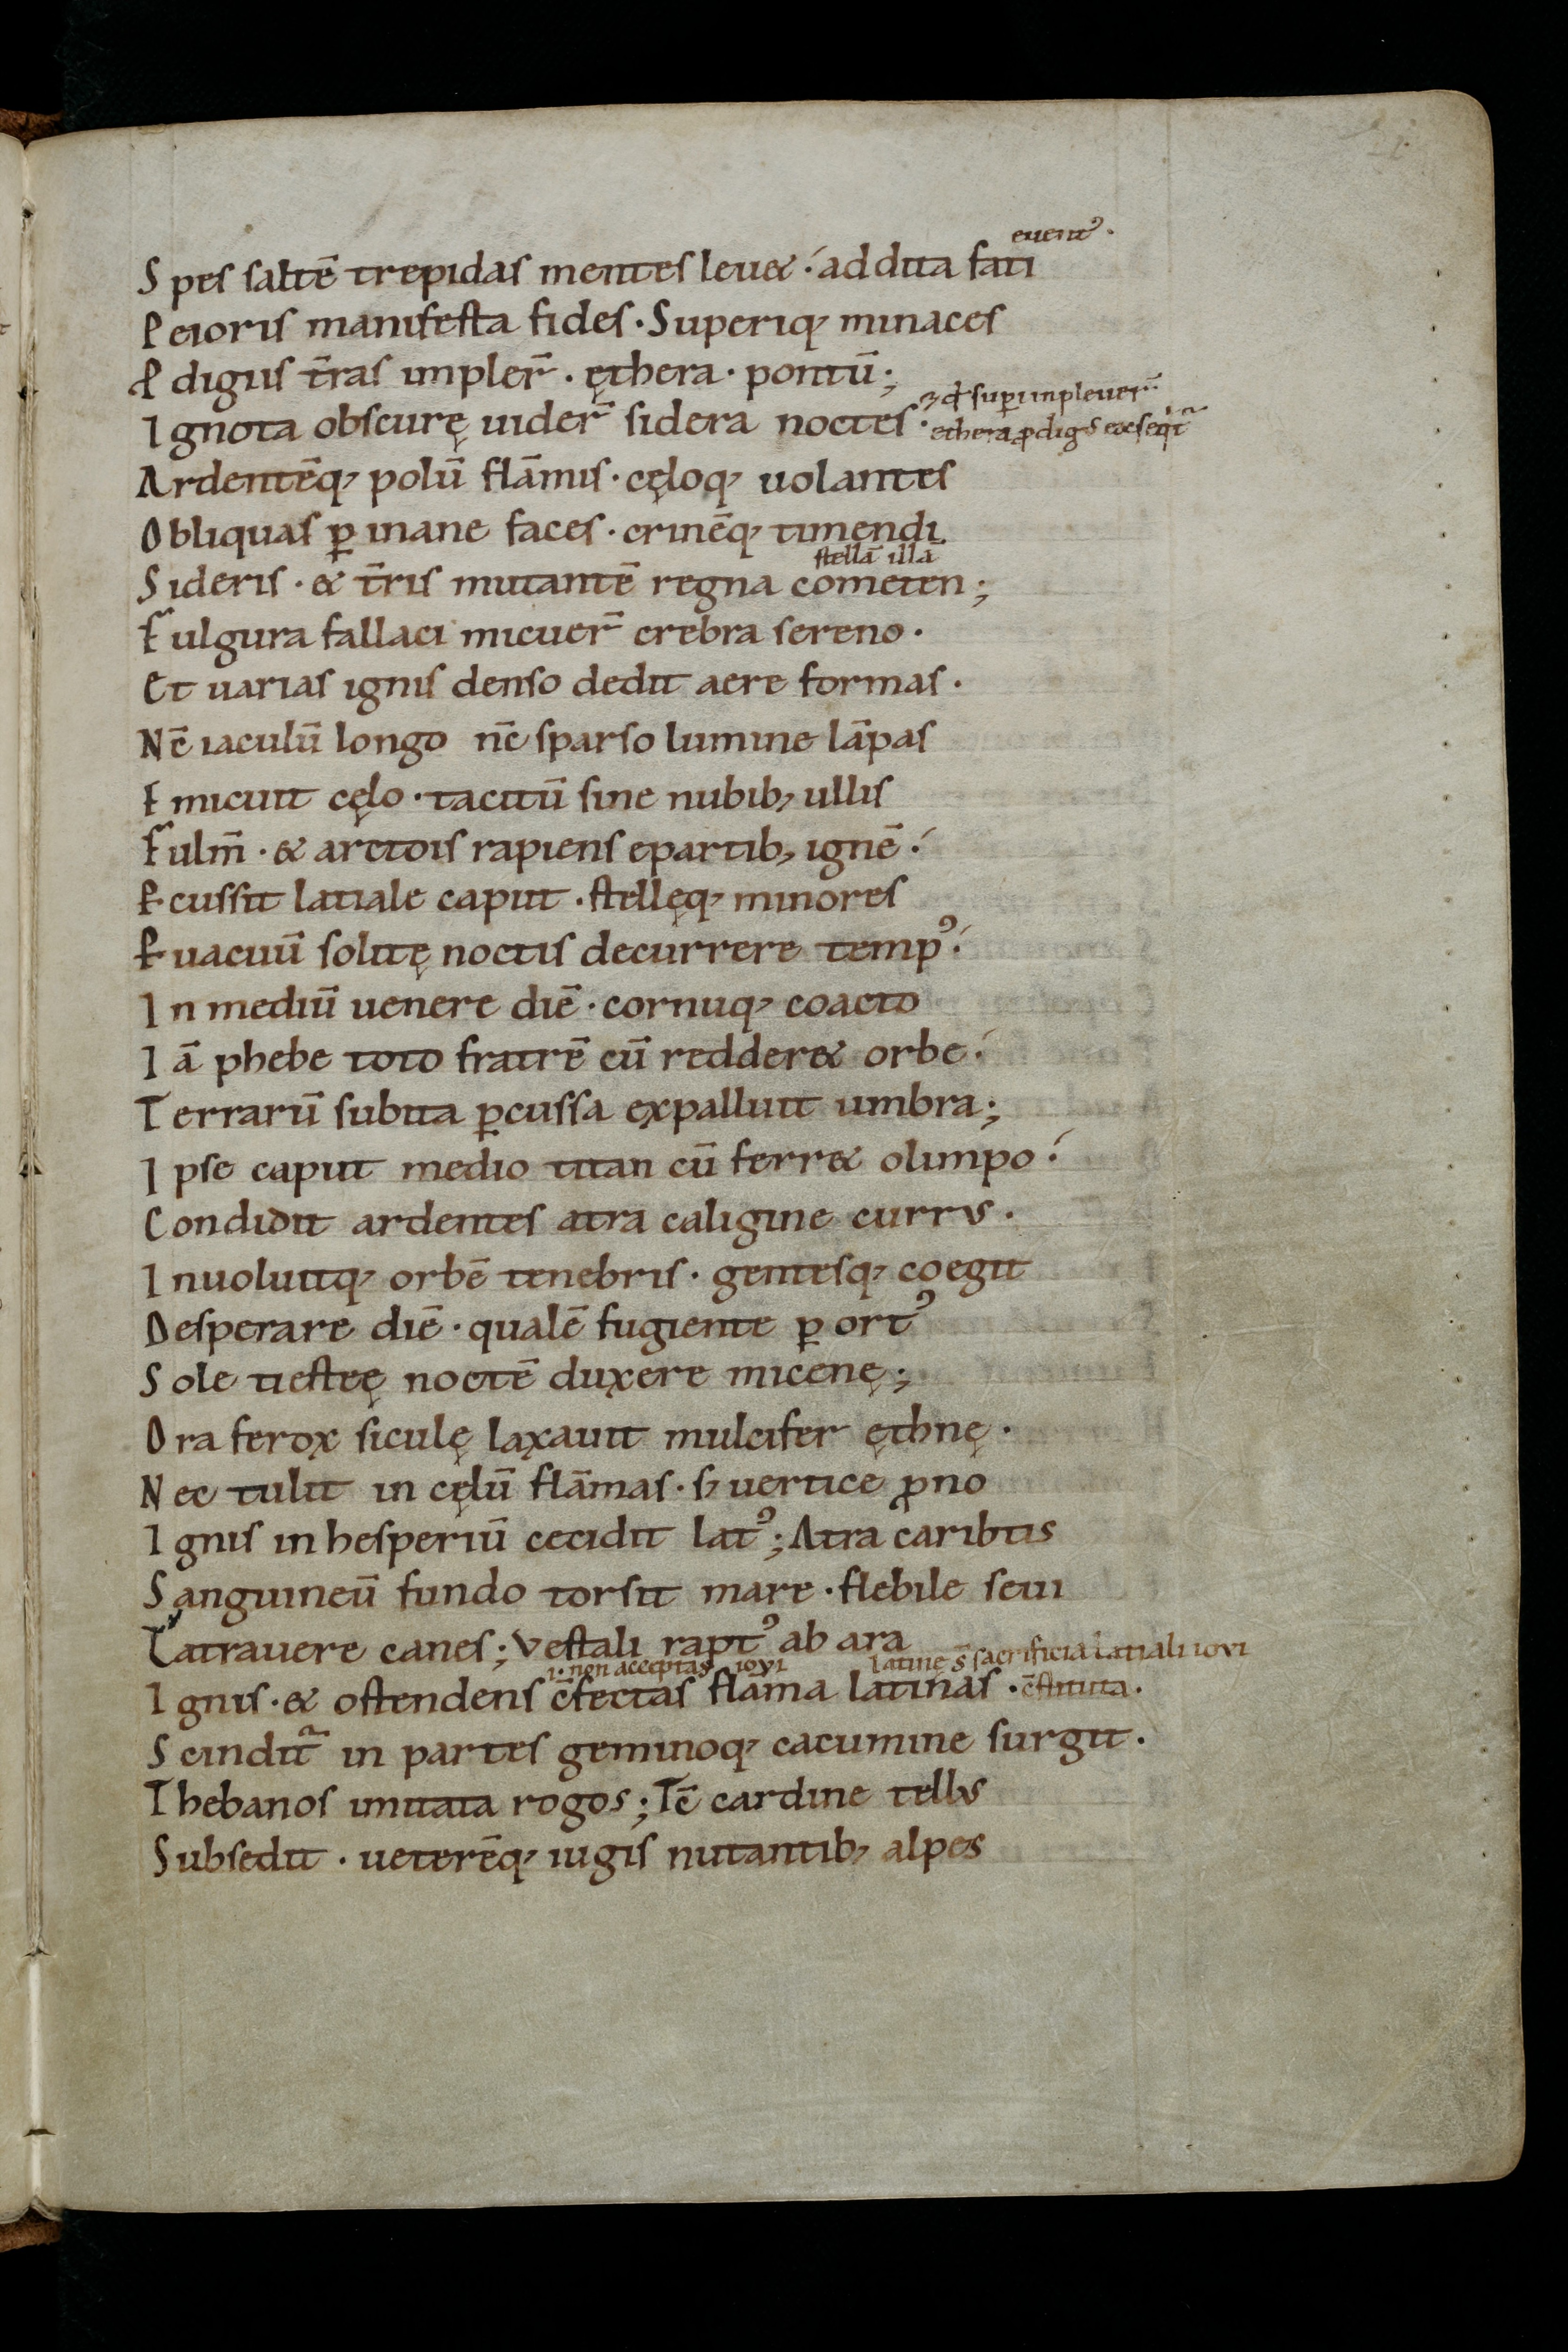 euent᾿.
Spes saltē trepidas mentes leu&. addita fati
Peioris manifesta fides. Superiq; minaces
Pdigiis t̄ras impler̄. ęthera. pontū;
⁊ qđ sup impleuer̄
Ignota obscurę uider̄ sidera noctes.
ethera pdigiis
Ardentēq; polū flāmis. cęloq; uolantes
Obliquas ꝑ inane faces. crinēq; timendi
stellā illā
Sideris. & t̄ris mutantē regna cometen;
Fulgura fallaci micuer̄ crebra sereno.
Et uarias ignis denso dedit aere formas.
Nc̄ iaculū longo nc̄ sparso lumine lāpas
Emicuit cęlo. tacitū sine nubib; ullis
Fulm̄. & arctois rapiens epartib; ignē.
Ꝑcussit latiale caput. stellęq; minores
Ꝑ uacuū solitę noctis decurrere temp᾿.
In mediū uenere diē. cornuq; coacto
Iā phebe toto fratrē cū redder& orbe.
Terrarū subita ꝑcussa expalluit umbra;
Ipse caput medio titan cū ferr& olimpo.
Condidit ardentes atra caligine currus.
Inuoluitq; orbē tenebris. gentesq; coegit
Desperare diē. qualē fugiente ꝑ ort᾿
Sole tiesteę noctē duxere micenę;
Ora ferox siculę laxauit mulcifer ęthnę.
Nec tulit in cęlū flāmas. s; uertice ꝓno
Ignis in hesperiū cecidit lat᾿; Atra caribtis
Sanguineū fundo torsit mare. flebile seui
Latrauere canes; Vestali rapt᾿ ab ara
.i. non acceptas ioui latinę s̄ sacrificia latiali ioui
Ignis. & ostendens c̄fectas flāma latinas. c̄stituta.
Scindit᷑ in partes geminoq; cacumine surgit.
Thebanos imitata rogos; Tc̄ cardine tellus
Subsedit. ueterēq; iugis nutantib; alpes